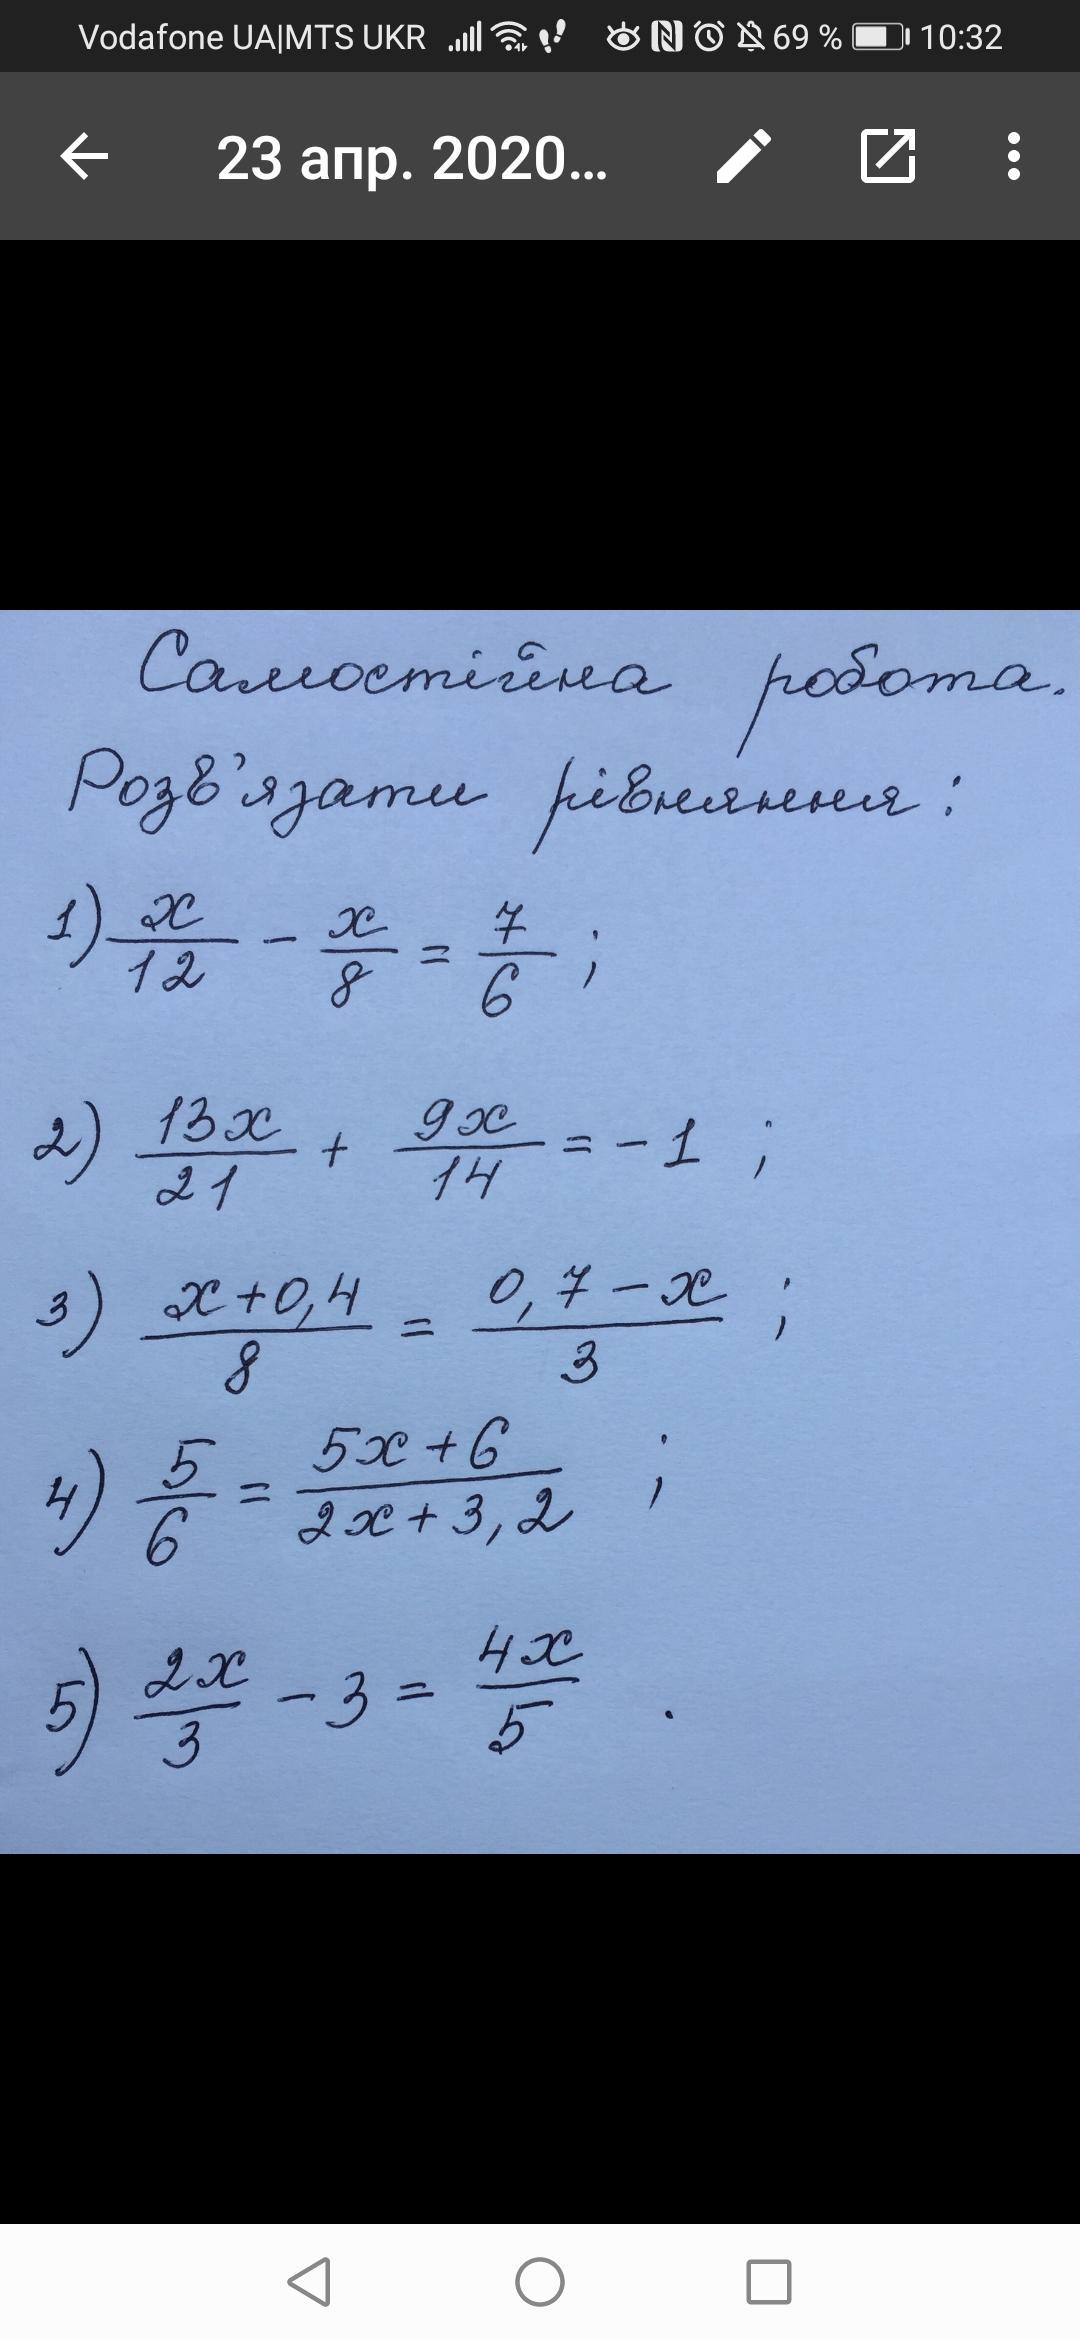 Vodafone UA|MTS UKR 69 % 10:32
23 апр. 2020...
Самостійна робота.
Розв'язати рівняння:
1) x/12 - x/8 = 7/6 ;
2) 13x/21 + 9x/14 = -1 ;
3) x+0,4/8 = 0,7-x/3 ;
4) 5/6 = 5x+6/2x+3,2 ;
5) 2x/3 - 3 = 4x/5 .